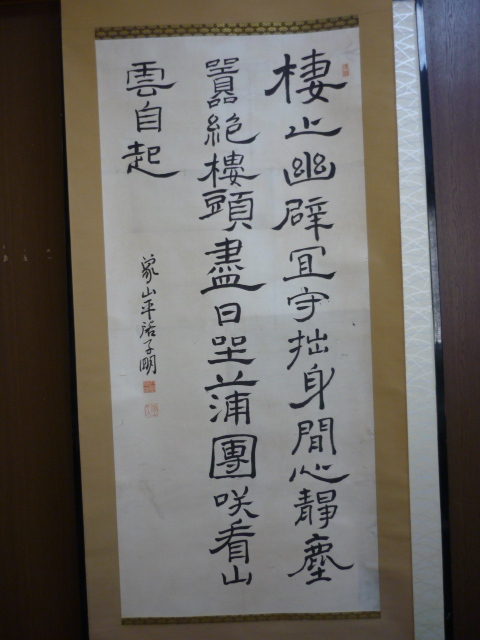 棲止幽辟冝守拙身閒心靜塵
囂絶樓頭盡日坐蒲團咲看山
雲自起
象山平啓子明